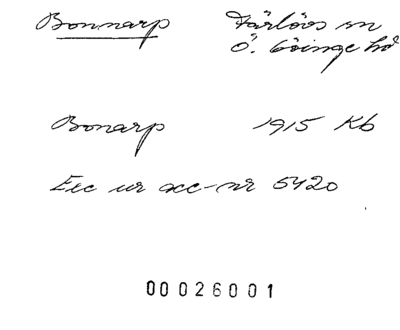 Bonnarp Färlövs sn
Ö. Göinge hd
Bonarp 1915 Kb
Exc ur acc-nr 5420
00026001